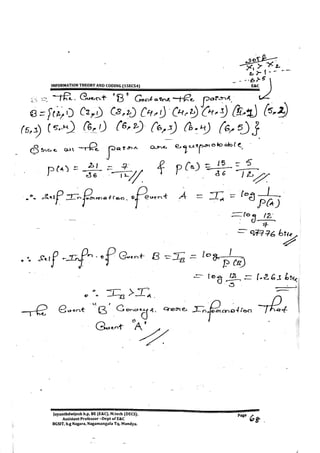 Set B
x₁ > x₂
2 > 1 - -
- - - 6 > 5
INFORMATION THEORY AND CODING (15EC54) E&C
The Event 'B' Contains the points
B = {(2,1) (3,1) (3,2) (4,1) (4,2) (4,3) (5,1) (5,2)
(5,3) (5,4) (6,1) (6,2) (6,3) (6,4) (6,5)}
Since all the points are equiprobable,
P(A) = 21/36 = 7/12 & P(B) = 15/36 = 5/12
∴ Self Information of event A = I_A = log 1/P(A)
= log 12/7
= 0.7776 bits
∴ Self-Infn. of Event B = I_B = log 1/P(B)
= log 12/5 = 1.263 bits
∴ I_B > I_A.
The event 'B' Conveys more Information That
Event 'A'
Jayanthdwijesh h.p, BE (E&C), M.tech (DECS).
Assistant Professor -Dept of E&C
BGSIT, b.g Nagara, Nagamangala Tq, Mandya.
Page 68